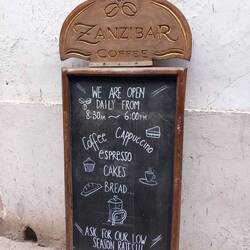 ZANZ'BAR
COFFEE
WE ARE OPEN
DAILY FROM
8:30am ~ 6:00pm
Coffee Cappuccino
espresso
CAKES
BREAD...
ASK FOR OUR LOW
SEASON RATES!!